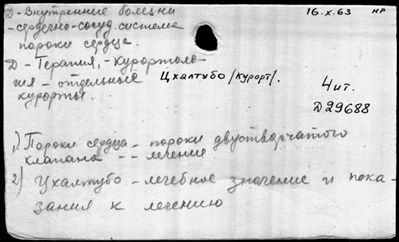 Д - Внутренние болезни
- сердечно-сосуд. система
пороки сердца.
Д - Терапия, - курортоло-
гия - отдельные
курорты.
Цхалтубо /курорт/.
16.X.63 НР
4 ит.
Д29688
1) Пороки сердца - пороки двустворчатого
клапана - - лечение
2) Цхалтубо - лечебное значение и пока-
зания к лечению